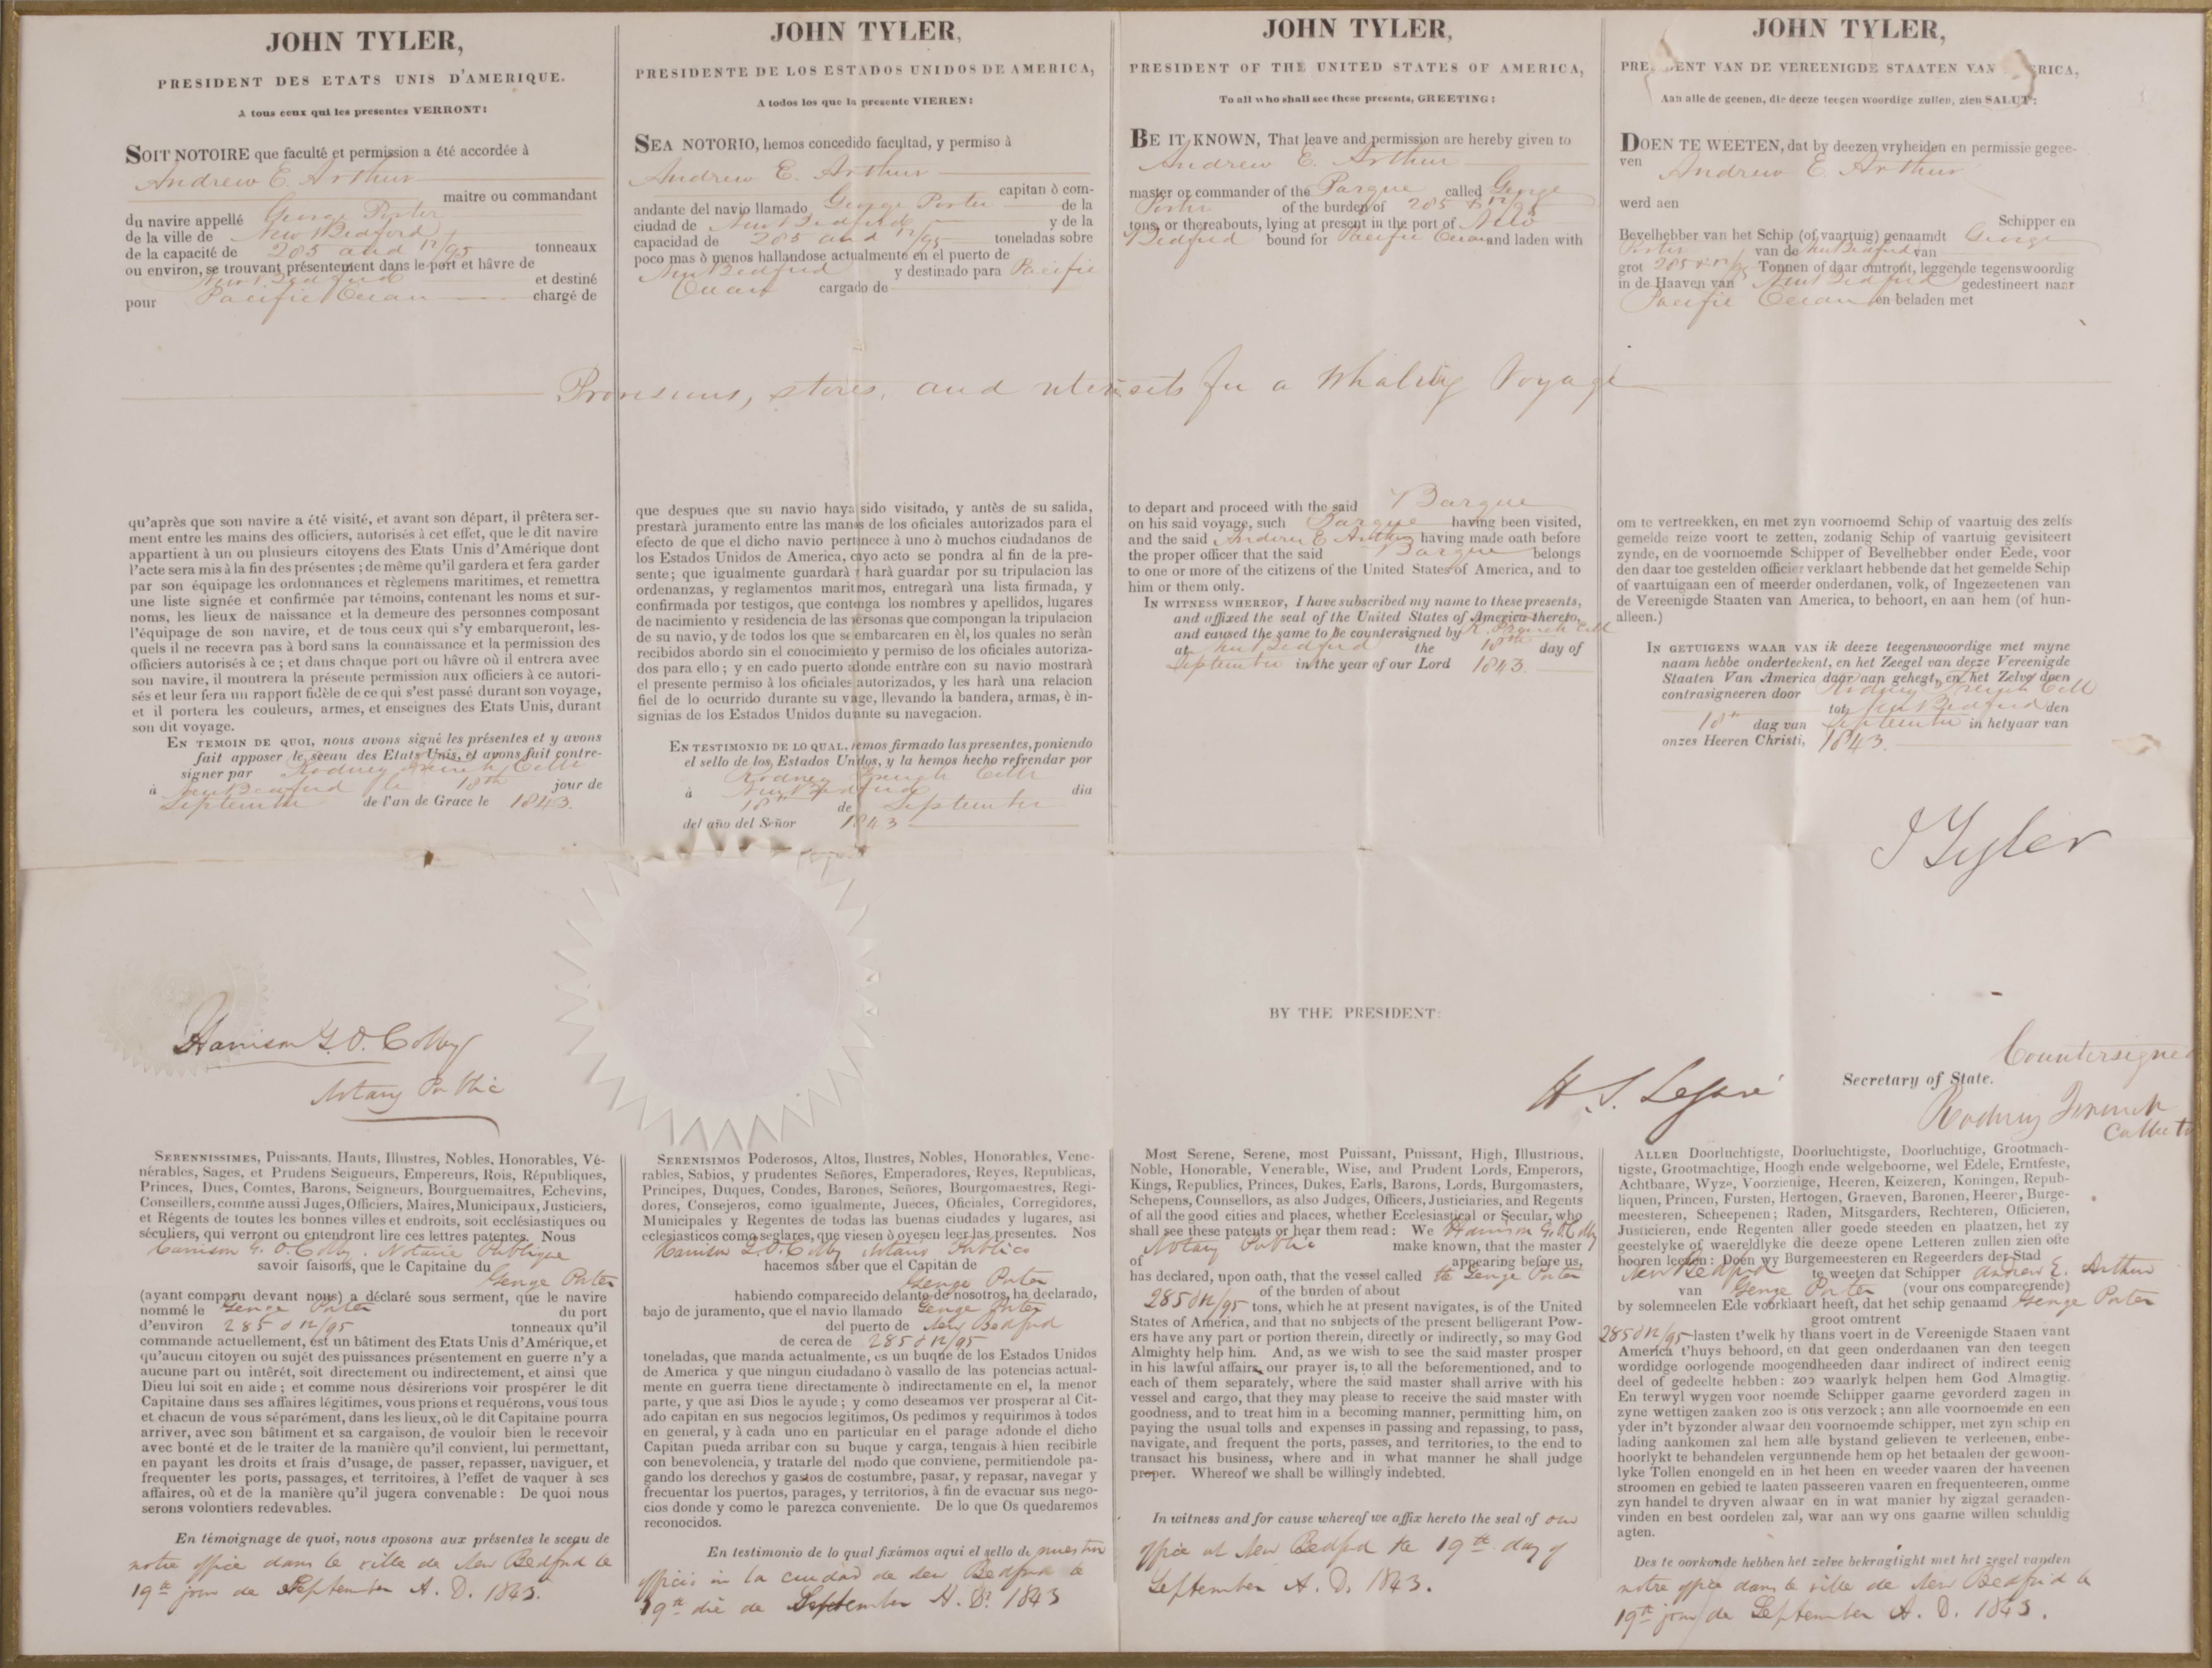 JOHN TYLER,
PRESIDENT DES ETATS UNIS D'AMERIQUE.
A tous ceux qui les presentes VERRONT:
SOIT NOTOIRE que faculté et permission a été accordée à
Andrew E. Arthur
maitre ou commandant
du navire appellé George Porter
de la ville de New Bedford
de la capacité de 285 and 12/95 tonneaux
ou environ, se trouvant présentement dans le port et hâvre de
New Bedford et destiné
pour Pacific Ocean chargé de
JOHN TYLER,
PRESIDENTE DE LOS ESTADOS UNIDOS DE AMERICA,
A todos los que la presente VIEREN:
SEA NOTORIO, hemos concedido facultad, y permiso à
Andrew E. Arthur
capitan ò com-
andante del navio llamado George Porter de la
ciudad de New Bedford y de la
capacidad de 285 and 12/95 toneladas sobre
poco mas ò menos hallandose actualmente en el puerto de
New Bedford y destinado para Pacific
Ocean cargado de
JOHN TYLER,
PRESIDENT OF THE UNITED STATES OF AMERICA,
To all who shall see these presents, GREETING:
BE IT KNOWN, That leave and permission are hereby given to
Andrew E. Arthur
master or commander of the Barque called George
Porter of the burden of 285 & 12/95
tons, or thereabouts, lying at present in the port of New
Bedford bound for Pacific Ocean and laden with
JOHN TYLER,
PRE ENT VAN DE VEREENIGDE STAATEN VAN RICA,
Aan alle de geenen, die deeze teegen woordige zullen, zien SALUT:
DOEN TE WEETEN, dat by deezen vryheiden en permissie gegee-
ven Andrew E. Arthur
werd aen
Schipper en
Bevelhebber van het Schip (of vaartuig) genaamdt George
Porter van de New Bedford van
grot 285 & 12/95 Tonnen of daar omtrent, leggende tegenswoordig
in de Haaven van New Bedford gedestineert naar
Pacific Ocean en beladen met
Provisions, stores, and utensils for a Whaling Voyage
qu'après que son navire a été visité, et avant son départ, il prêtera ser-
ment entre les mains des officiers, autorisés à cet effet, que le dit navire
appartient à un ou plusieurs citoyens des Etats Unis d'Amérique dont
l'acte sera mis à la fin des présentes; de même qu'il gardera et fera garder
par son équipage les ordonnances et règlemens maritimes, et remettra
une liste signée et confirmée par témoins, contenant les noms et sur-
noms, les lieux de naissance et la demeure des personnes composant
l'équipage de son navire, et de tous ceux qui s'y embarqueront, les-
quels il ne recevra pas à bord sans la connaissance et la permission des
officiers autorisés à ce; et dans chaque port ou hâvre où il entrera avec
son navire, il montrera la présente permission aux officiers à ce autori-
sés et leur fera un rapport fidèle de ce qui s'est passé durant son voyage,
et il portera les couleurs, armes, et enseignes des Etats Unis, durant
son dit voyage.
EN TEMOIN DE QUOI, nous avons signé les présentes et y avons
fait apposer le sceau des Etats Unis, et avons fait contre-
signer par Rodney French, Collr
à New Bedford le 18th jour de
September de l'an de Grace le 1843.
que despues que su navio haya sido visitado, y antès de su salida,
prestarà juramento entre las manos de los oficiales autorizados para el
efecto de que el dicho navio pertenece à uno ò muchos ciudadanos de
los Estados Unidos de America, cuyo acto se pondra al fin de la pre-
sente; que igualmente guardarà y harà guardar por su tripulacion las
ordenanzas, y reglamentos maritimos, entregarà una lista firmada, y
confirmada por testigos, que contenga los nombres y apellidos, lugares
de nacimiento y residencia de las personas que compongan la tripulacion
de su navio, y de todos los que se embarcaren en èl, los quales no seràn
recibidos abordo sin el conocimiento y permiso de los oficiales autoriza-
dos para ello; y en cado puerto adonde entràre con su navio mostrarà
el presente permiso à los oficiales autorizados, y les harà una relacion
fiel de lo ocurrido durante su vage, llevando la bandera, armas, è in-
signias de los Estados Unidos durante su navegacion.
EN TESTIMONIO DE LO QUAL, hemos firmado las presentes, poniendo
el sello de los Estados Unidos, y la hemos hecho refrendar por
Rodney French Collr
à New Bedford dia
18th de September
del año del Señor 1843
to depart and proceed with the said Barque
on his said voyage, such Barque having been visited,
and the said Andrew E Arthur having made oath before
the proper officer that the said Barque belongs
to one or more of the citizens of the United States of America, and to
him or them only.
IN WITNESS WHEREOF, I have subscribed my name to these presents,
and affixed the seal of the United States of America thereto,
and caused the same to be countersigned by R. French Coll
at New Bedford the 18th day of
September in the year of our Lord 1843.
om te vertreekken, en met zyn voornoemd Schip of vaartuig des zelfs
gemelde reize voort te zetten, zodanig Schip of vaartuig gevisiteert
zynde, en de voornoemde Schipper of Bevelhebber onder Eede, voor
den daar toe gestelden officier verklaart hebbende dat het gemelde Schip
of vaartuigaan een of meerder onderdanen, volk, of Ingezeetenen van
de Vereenigde Staaten van America, to behoort, en aan hem (of hun-
alleen.)
IN GETUIGENS WAAR VAN ik deeze teegenswoordige met myne
naam hebbe onderteekent, en het Zeegel van deeze Vereenigde
Staaten Van America daar aan gehegt, en het Zelve doen
contrasigneeren door Rodney French Coll
tot New Bedford den
18th dag van September in hetyaar van
onzes Heeren Christi, 1843.
J Tyler
Harrison G. O. Colby
Notary Public
BY THE PRESIDENT:
H. S. Legaré
Secretary of State.
Countersigned
Rodney French
Collector
SERENNISSIMES, Puissants, Hauts, Illustres, Nobles, Honorables, Vé-
nérables, Sages, et Prudens Seigneurs, Empereurs, Rois, Républiques,
Princes, Ducs, Comtes, Barons, Seigneurs, Bourguemaitres, Echevins,
Conseillers, comme aussi Juges, Officiers, Maires, Municipaux, Justiciers,
et Régents de toutes les bonnes villes et endroits, soit ecclésiastiques ou
séculiers, qui verront ou entendront lire ces lettres patentes. Nous
Harrison G. O. Colby. Notarie Publique
savoir faisons, que le Capitaine du
George Porter
(ayant comparu devant nous) a déclaré sous serment, que le navire
nommé le George Porter du port
d'environ 285 & 12/95 tonneaux qu'il
commande actuellement, est un bâtiment des Etats Unis d'Amérique, et
qu'aucun citoyen ou sujét des puissances présentement en guerre n'y a
aucune part ou intérêt, soit directement ou indirectement, et ainsi que
Dieu lui soit en aide; et comme nous désirerions voir prospérer le dit
Capitaine dans ses affaires légitimes, vous prions et requérons, vous tous
et chacun de vous séparément, dans les lieux, où le dit Capitaine pourra
arriver, avec son bâtiment et sa cargaison, de vouloir bien le recevoir
avec bonté et de le traiter de la manière qu'il convient, lui permettant,
en payant les droits et frais d'usage, de passer, repasser, naviguer, et
frequenter les ports, passages, et territoires, à l'effet de vaquer à ses
affaires, où et de la manière qu'il jugera convenable: De quoi nous
serons volontiers redevables.
En témoignage de quoi, nous aposons aux présentes le sceau de
notre office dans le ville de New Bedford le
19th jour de September A. D. 1843.
SERENISIMOS Poderosos, Altos, Ilustres, Nobles, Honorables, Vene-
rables, Sabios, y prudentes Señores, Emperadores, Reyes, Republicas,
Principes, Duques, Condes, Barones, Señores, Bourgomaestres, Regi-
dores, Consejeros, como igualmente, Jueces, Oficiales, Corregidores,
Municipales y Regentes de todas las buenas ciudades y lugares, asi
eclesiasticos como seglares, que viesen ò oyesen leer las presentes. Nos
Harrison G. O. Colby Notario Publico
hacemos saber que el Capitán de
George Porter
habiendo comparecido delante de nosotros, ha declarado,
bajo de juramento, que el navio llamado George Porter
del puerto de New Bedford
de cerca de 285 & 12/95
toneladas, que manda actualmente, es un buque de los Estados Unidos
de America y que ningun ciudadano ò vasallo de las potencias actual-
mente en guerra tiene directamente ò indirectamente en el, la menor
parte, y que asi Dios le ayude; y como deseamos ver prosperar al Cit-
ado capitan en sus negocios legitimos, Os pedimos y requirimos à todos
en general, y à cada uno en particular en el parage adonde el dicho
Capitan pueda arribar con su buque y carga, tengais à hien recibirle
con benevolencia, y tratarle del modo que conviene, permitiendole pa-
gando los derechos y gastos de costumbre, pasar, y repasar, navegar y
frecuentar los puertos, parages, y territorios, à fin de evacuar sus nego-
cios donde y como le parezca conveniente. De lo que Os quedaremos
reconocidos.
En testimonio de lo qual fixámos aqui el sello de nuestro
officio in la cuidad de New Bedford le
19th die de September A. D. 1843
Most Serene, Serene, most Puissant, Puissant, High, Illustrious,
Noble, Honorable, Venerable, Wise, and Prudent Lords, Emperors,
Kings, Republics, Princes, Dukes, Earls, Barons, Lords, Burgomasters,
Schepens, Counsellors, as also Judges, Officers, Justiciaries, and Regents
of all the good cities and places, whether Ecclesiastical or Secular, who
shall see these patents or hear them read: We Harrison G. O. Colby
Notary Public make known, that the master
of appearing before us,
has declared, upon oath, that the vessel called the George Porter
of the burden of about
285 & 12/95 tons, which he at present navigates, is of the United
States of America, and that no subjects of the present belligerant Pow-
ers have any part or portion therein, directly or indirectly, so may God
Almighty help him. And, as we wish to see the said master prosper
in his lawful affairs, our prayer is, to all the beforementioned, and to
each of them separately, where the said master shall arrive with his
vessel and cargo, that they may please to receive the said master with
goodness, and to treat him in a becoming manner, permitting him, on
paying the usual tolls and expenses in passing and repassing, to pass,
navigate, and frequent the ports, passes, and territories, to the end to
transact his business, where and in what manner he shall judge
proper. Whereof we shall be willingly indebted.
In witness and for cause whereof we affix hereto the seal of our
office at New Bedford the 19th day of
September A. D. 1843.
ALLER Doorluchtigste, Doorluchtigste, Doorluchtige, Grootmach-
tigste, Grootmachtige, Hoogh ende welgeboorne, wel Edele, Erntfeste,
Achtbaare, Wyze, Voorzienige, Heeren, Keizeren, Koningen, Repub-
liquen, Princen, Fursten, Hertogen, Graeven, Baronen, Heerer, Burge-
meesteren, Scheepenen; Raden, Mitsgarders, Rechteren, Officieren,
Justicieren, ende Regenten aller goede steeden en plaatzen, het zy
geestelyke of waereldlyke die deeze opene Letteren zullen zien ofte
hooren leezen: Doen wy Burgemeesteren en Regeerders der Stad
New Bedford te weeten dat Schipper Andrew E. Arthur
van George Porter (vour ons compareerende)
by solemneelen Ede voorklaart heeft, dat het schip genaamd George Porter
groot omtrent
285 & 12/95 lasten t'welk hy thans voert in de Vereenigde Staaen vant
America t'huys behoord, en dat geen onderdaanen van den teegen
wordidge oorlogende moogendheeden daar indirect of indirect eenig
deel of gedeelte hebben: zoo waarlyk helpen hem God Almagtig.
En terwyl wygen voor noemde Schipper gaarne gevorderd zagen in
zyne wettigen zaaken zoo is ons verzock; ann alle voornoemde en een
yder in't byzonder alwaar den voornoemde schipper, met zyn schip en
lading aankomen zal hem alle bystand gelieven te verleenen, enbe-
hoorlykt te behandelen vergunnende hem op het betaalen der gewoon-
lyke Tollen enongeld en in het heen en weeder vaaren der haveenen
stroomen en gebied te laaten passeeren vaaren en frequenteeren, omme
zyn handel te dryven alwaar en in wat manier hy zigzal geraaden-
vinden en best oordelen zal, war aan wy ons gaarne willen schuldig
agten.
Des te oorkonde hebben het zelve bekragtight met het zegel vanden
notre office dans le ville de New Bedford le
19th jour de September A. D. 1843.